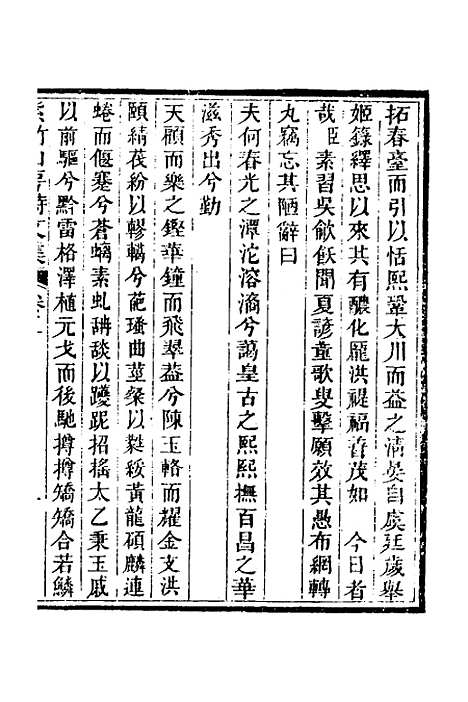 拓春臺而引以恬熙鞏大川而益之清晏自虞廷歲舉
姬籙繹思以來其有醲化龐洪禔福普茂如　今日者
哉臣素習吳歈飫聞夏諺童歌叟擊願效其愚布網轉
丸竊忘其陋辭曰
夫何春光之潭沱溶滀兮藹皇古之熙熙撫百昌之華
滋秀出兮勤
天顧而樂之鏗華鐘而飛翠蓋兮陳玉輅而耀金支洪
頤綪茷紛以轇轕兮葩瑵曲莖粲以㲯綏黃龍碩麟連
蜷而偃蹇兮蒼螭素虬骿䟫以躨跜招搖太乙乘玉戚
以前驅兮黔雷格澤植元戈而後馳撙撙矯矯合若鱗
紫竹山房詩文集　卷十一